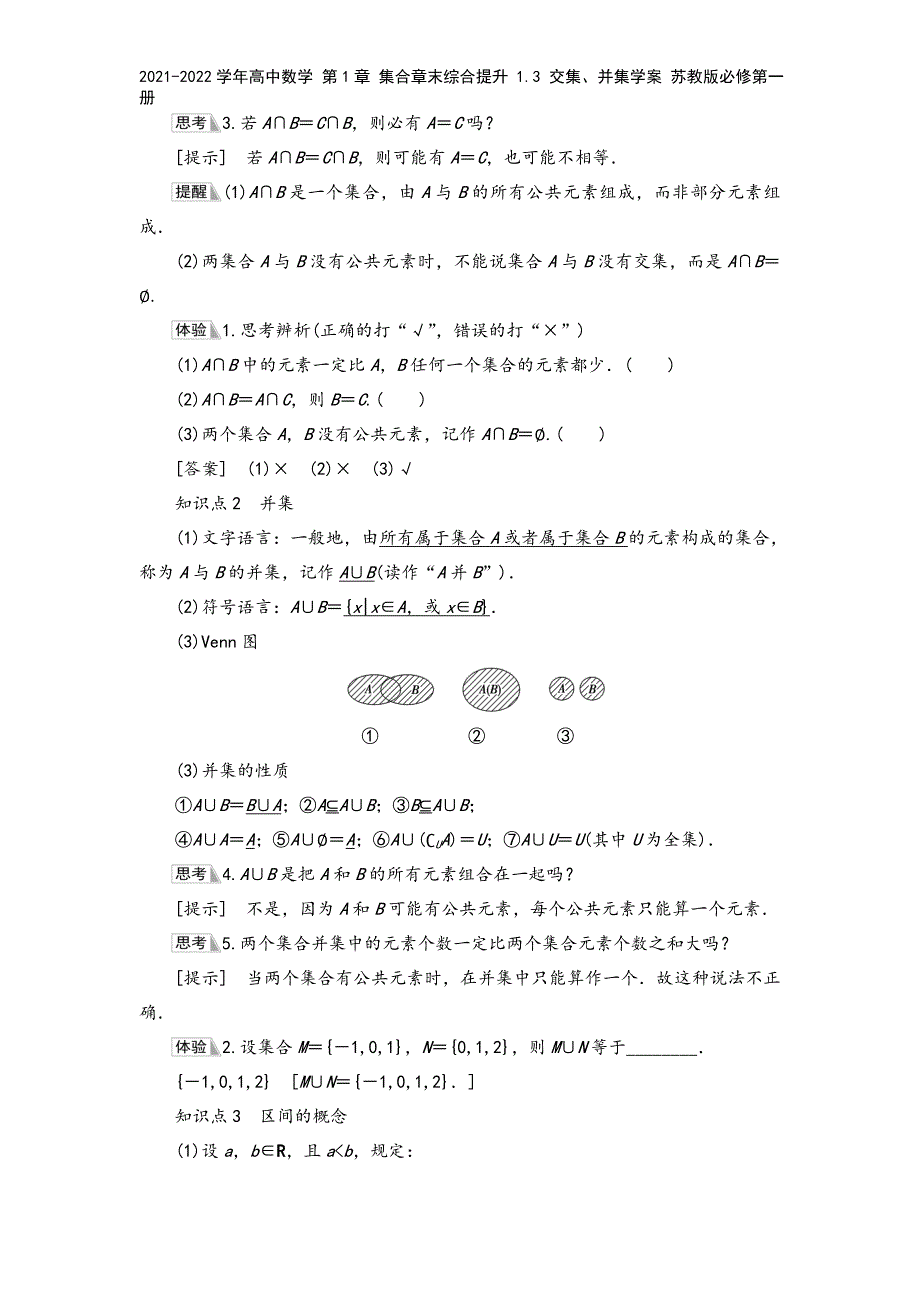 2021-2022学年高中数学 第1章 集合章末综合提升 1.3 交集、并集学案 苏教版必修第一
册
思考3.若A∩B＝C∩B，则必有A＝C吗？
[提示]　若A∩B＝C∩B，则可能有A＝C，也可能不相等．
提醒(1)A∩B是一个集合，由A与B的所有公共元素组成，而非部分元素组
成．
(2)两集合A与B没有公共元素时，不能说集合A与B没有交集，而是A∩B＝
∅.
体验1.思考辨析(正确的打“√”，错误的打“×”)
(1)A∩B中的元素一定比A，B任何一个集合的元素都少．(　　)
(2)A∩B＝A∩C，则B＝C.(　　)
(3)两个集合A，B没有公共元素，记作A∩B＝∅.(　　)
[答案]　(1)×　(2)×　(3)√
知识点2　并集
(1)文字语言：一般地，由所有属于集合A或者属于集合B的元素构成的集合，
称为A与B的并集，记作A∪B(读作“A并B”)．
(2)符号语言：A∪B＝{x|x∈A，或x∈B}．
(3)Venn图
A B A(B) A B
① ② ③
(3)并集的性质
①A∪B＝B∪A；②A⊆A∪B；③B⊆A∪B；
④A∪A＝A；⑤A∪∅＝A；⑥A∪(∁UA)＝U；⑦A∪U＝U(其中U为全集)．
思考4.A∪B是把A和B的所有元素组合在一起吗？
[提示]　不是，因为A和B可能有公共元素，每个公共元素只能算一个元素．
思考5.两个集合并集中的元素个数一定比两个集合元素个数之和大吗？
[提示]　当两个集合有公共元素时，在并集中只能算作一个．故这种说法不正
确．
体验2.设集合M＝{－1,0,1}，N＝{0,1,2}，则M∪N等于________．
{－1,0,1,2}　[M∪N＝{－1,0,1,2}．]
知识点3　区间的概念
(1)设a，b∈R，且a<b，规定：